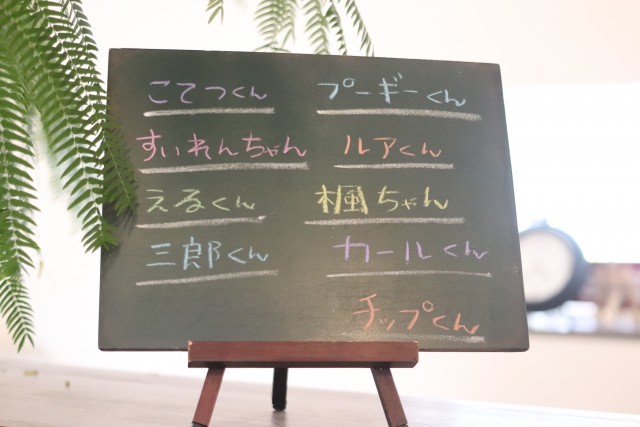 こてつくん
すいれんちゃん
えるくん
三郎くん
プーギーくん
ルアくん
楓ちゃん
カールくん
チップくん